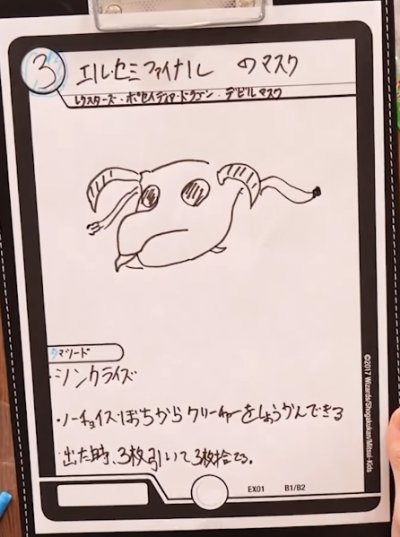 3
エル・セミファイナル のマスク
レクスターズ・ポセイディア・ドラゴン・デビルマスク
タマシード
・シンクライズ
・ノーチョイスぼちからクリーチャーをしょうかんできる
出た時、3枚引いて3枚捨てる。
©2017 Wizards/Shogakukan/Mitsui-Kids
EX01 B1/B2